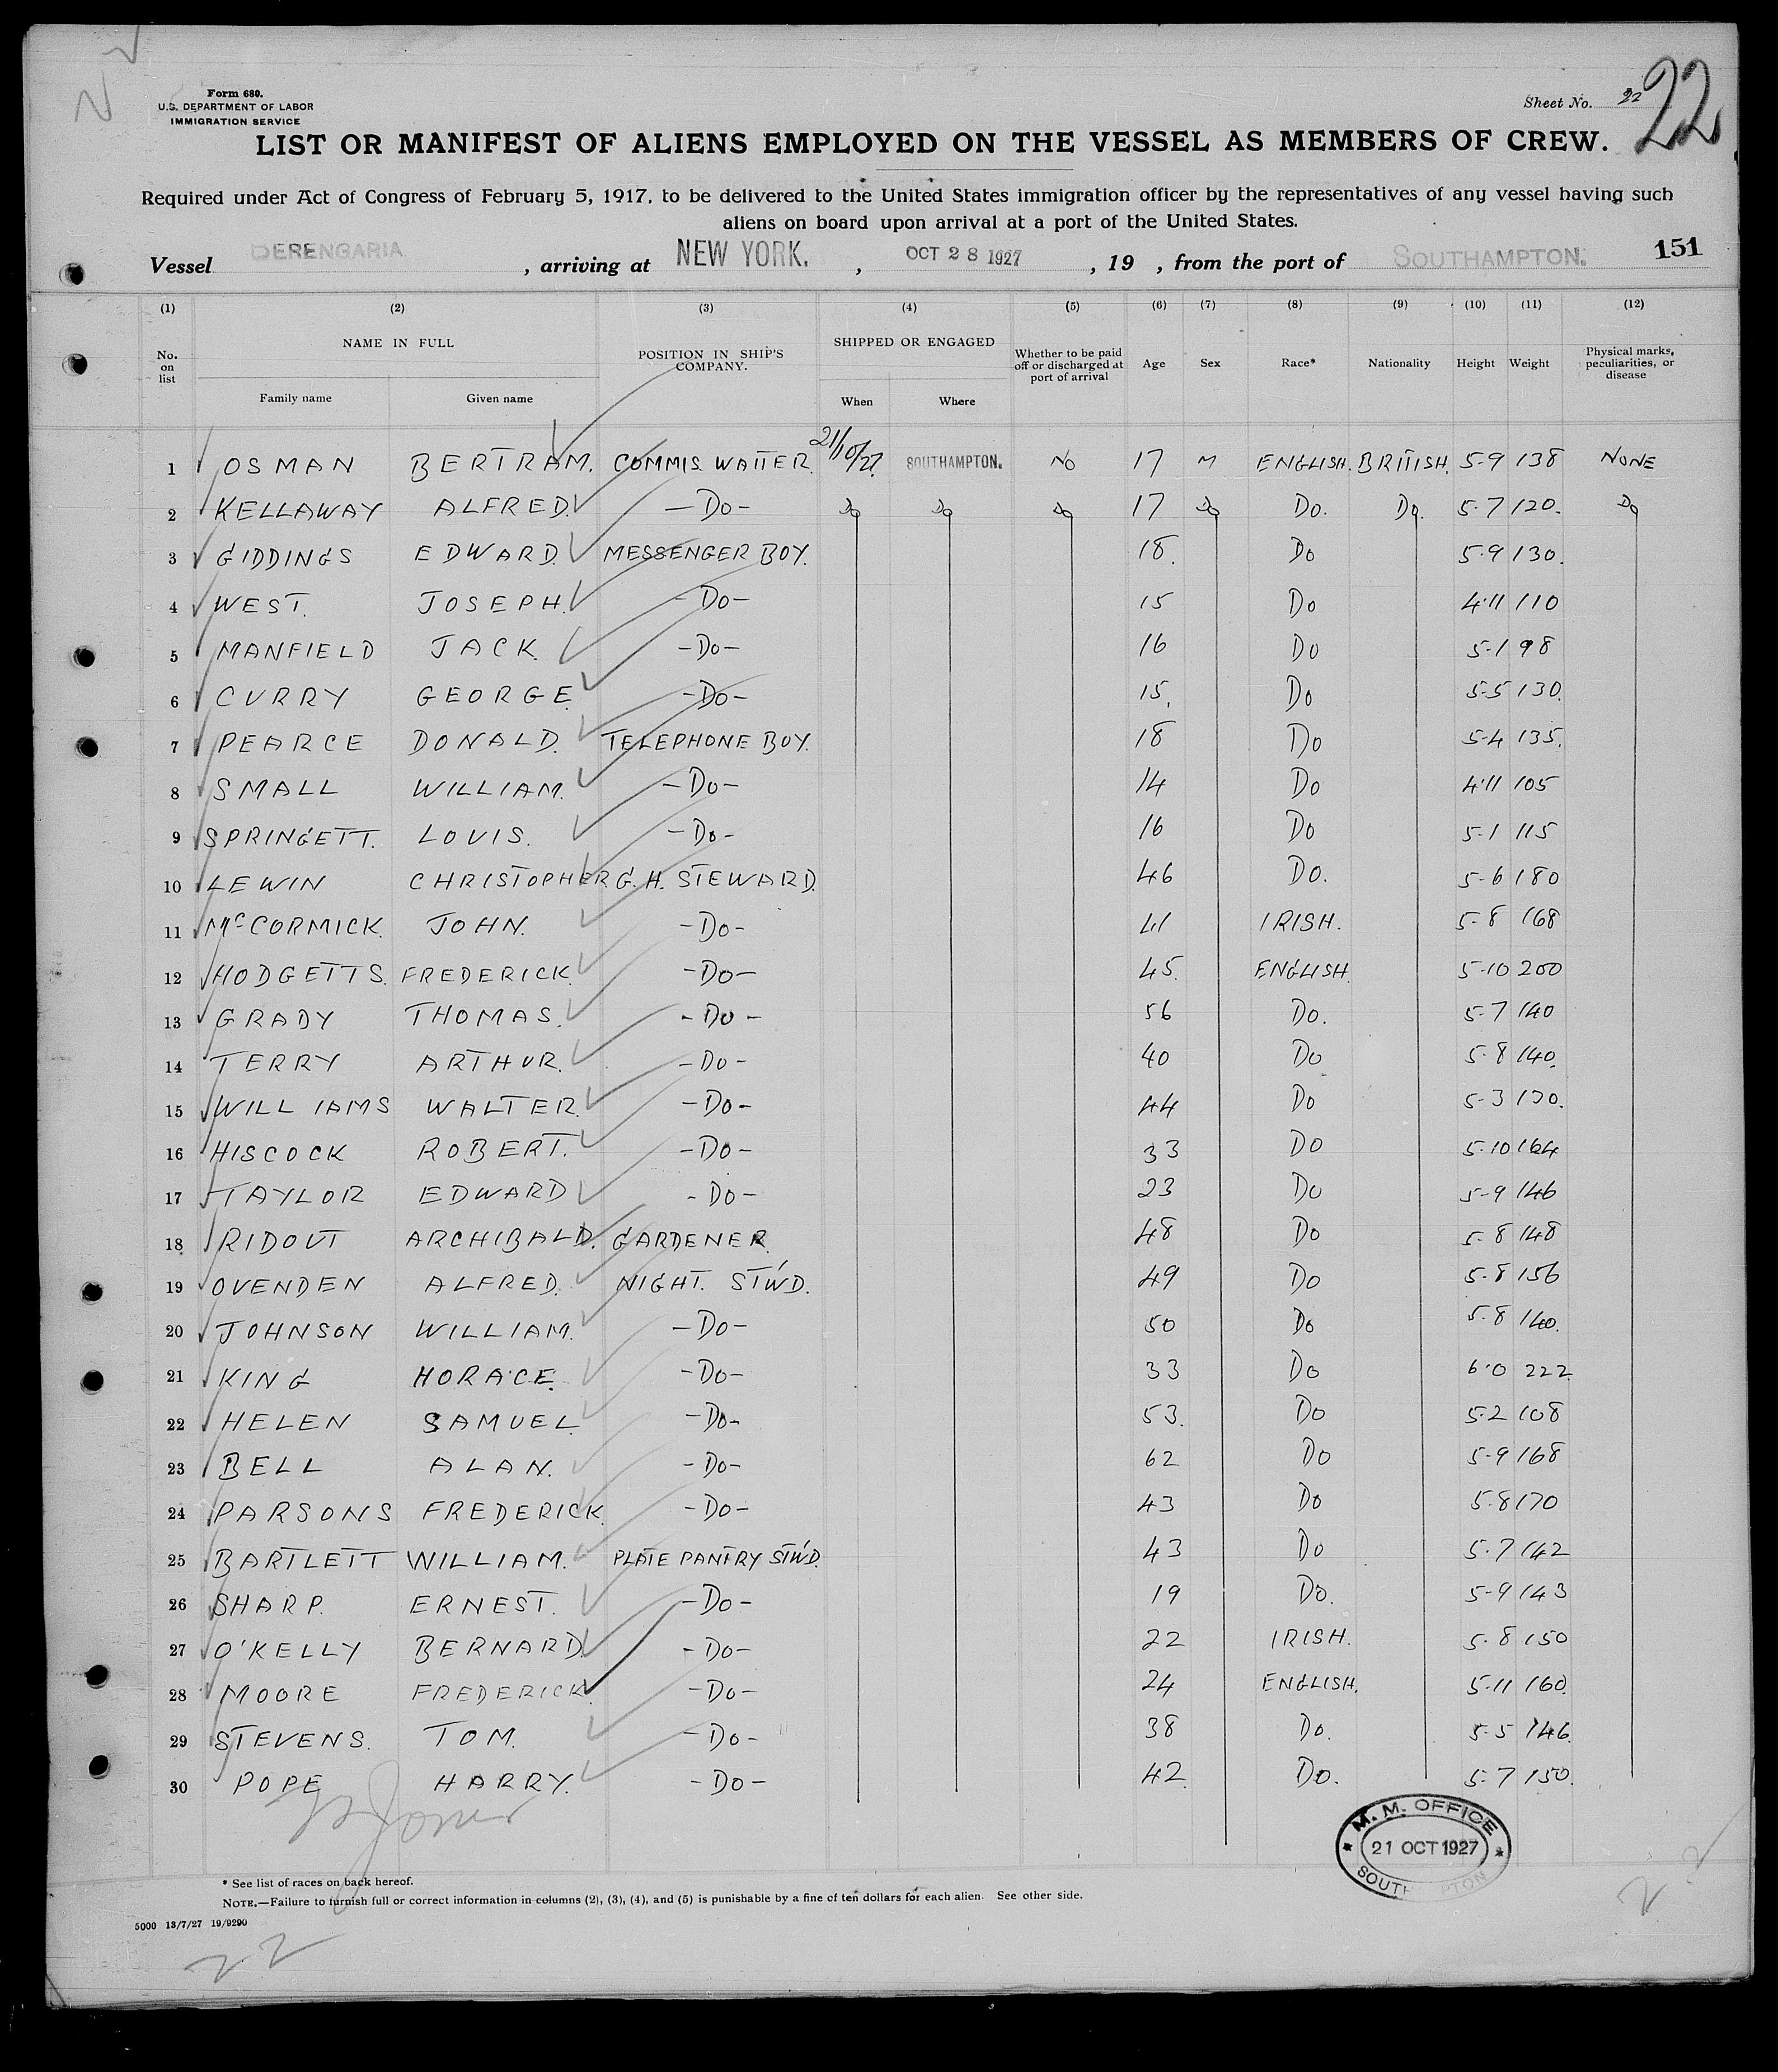 Form 680.
U.S. DEPARTMENT OF LABOR
IMMIGRATION SERVICE
Sheet No. 22
22
LIST OR MANIFEST OF ALIENS EMPLOYED ON THE VESSEL AS MEMBERS OF CREW.
Required under Act of Congress of February 5, 1917, to be delivered to the United States immigration officer by the representatives of any vessel having such
aliens on board upon arrival at a port of the United States.
Vessel BERENGARIA, arriving at NEW YORK., OCT 28 1927, 19 , from the port of SOUTHAMPTON. 151
(1) (2) (3) (4) (5) (6) (7) (8) (9) (10) (11) (12)
No. on list NAME IN FULL Family name Given name POSITION IN SHIP'S COMPANY. SHIPPED OR ENGAGED When Where Whether to be paid off or discharged at port of arrival Age Sex Race* Nationality Height Weight Physical marks, peculiarities, or disease
1 OSMAN BERTRAM. COMMIS WAITER 21/10/27. SOUTHAMPTON. NO 17 M ENGLISH. BRITISH. 5-9 138 NONE
2 KELLAWAY ALFRED. -DO- DO DO DO 17 DO DO. DO. 5-7 120. DO
3 GIDDINGS EDWARD. MESSENGER BOY. 18. DO 5-9 130.
4 WEST. JOSEPH. -DO- 15 DO 4-11 110
5 MANFIELD JACK. -DO- 16 DO 5-1 98
6 CURRY GEORGE. -DO- 15. DO 5-5 130.
7 PEARCE DONALD. TELEPHONE BOY. 18 DO 5-4 135.
8 SMALL WILLIAM. -DO- 14 DO 4-11 105
9 SPRINGETT. LOUIS. -DO- 16 DO 5-1 115
10 LEWIN CHRISTOPHER G.H. STEWARD. 46 DO. 5-6 180
11 McCORMICK. JOHN. -DO- 41 IRISH. 5-8 168
12 HODGETTS. FREDERICK. -DO- 45. ENGLISH. 5-10 200
13 GRADY THOMAS. -DO- 56 DO. 5-7 140
14 TERRY ARTHUR. -DO- 40 DO 5-8 140.
15 WILLIAMS WALTER. -DO- 44 DO 5-3 170.
16 HISCOCK ROBERT. -DO- 33 DO 5-10 164
17 TAYLOR EDWARD -DO- 23 DO 5-9 146
18 RIDOUT ARCHIBALD. GARDENER. 48 DO 5-8 148
19 OVENDEN ALFRED. NIGHT. ST'W'D. 49 DO 5-8 156
20 JOHNSON WILLIAM. -DO- 50 DO 5-8 140.
21 KING HORACE. -DO- 33 DO 6-0 222.
22 HELEN SAMUEL. -DO- 53. DO 5-2 108
23 BELL ALAN. -DO- 62 DO 5-9 168
24 PARSONS FREDERICK. -DO- 43 DO 5-8 170
25 BARTLETT WILLIAM. PLATE PANTRY STW'D. 43 DO 5-7 142
26 SHARP. ERNEST. -DO- 19 DO. 5-9 143
27 O'KELLY BERNARD. -DO- 22 IRISH. 5-8 150
28 MOORE FREDERICK. -DO- 24 ENGLISH. 5-11 160.
29 STEVENS. TOM. -DO- 38 DO. 5-5 146.
30 POPE HARRY. -DO- 42. DO. 5-7 150.
M. M. OFFICE
21 OCT 1927
SOUTHAMPTON
* See list of races on back hereof.
NOTE.—Failure to furnish full or correct information in columns (2), (3), (4), and (5) is punishable by a fine of ten dollars for each alien. See other side.
5000 13/7/27 19/9290
22